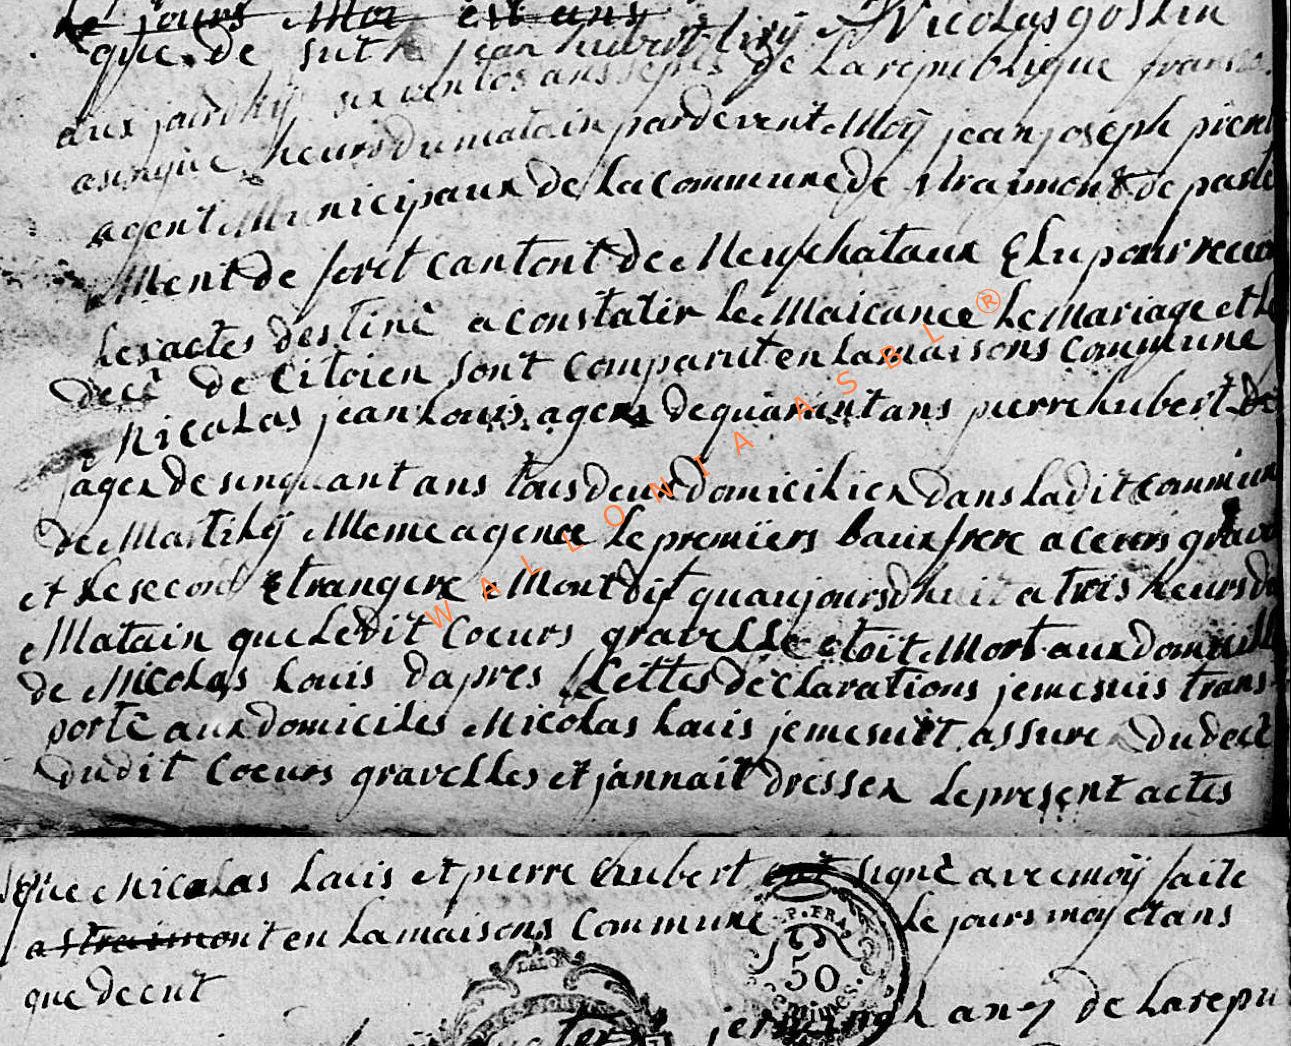 Le jours Moi est ans
que de sut jean hubert lixÿ Nicolas goslin
aux jourdhÿ six ventos ans sept de La republique franse
asinque heurs du matain pardevent Moÿ jean joseph pierr
agent Municipaux de La commune de straimont de parte
Ment de foret cantont de Neufchataux Elu pour recev
Les actes destinê a constatér Le Maicance Le Mariage et Le
decê de Citoien sont comparut en La maisons commune
Nicolas jean Louis agex de quarant ans pierre hubert de
agex de sinquant ans tous deux domiciliex dans La dit commun
de Martilÿ Meme agence Le premiers baux frere a cœurs grave
et Le second Etrangere Mont dit quaujoursdhuit a trois heurs du
Matain que Ledit Coeurs gravelle etoit Mort aux domicill
de Nicolas Louis dapres Lettes déclarations je me suis trans-
portê aux domiciles Nicolas Louis je me suit assure du decê
dudit Coeurs gravelles et jannait dressex Le present actes
que Nicolas Louis et pierre hubert ont signê avec moÿ faite
a straimont en La maisons Commune Le jours moÿ et ans
que decut
an 7 de La repu
P.FRA
50
WALLONIA ASBL®